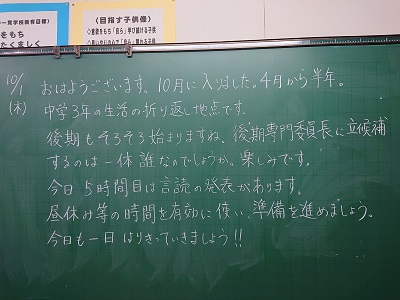 一貫学校教育目標〉
をもち
たくましく
〈目指す子供像〉
◇意欲をもち「自ら」学び続ける子供
10/1 おはようございます。10月に入りました。4月から半年。
(木) 中学3年の生活の折り返し地点です。
後期もそろそろ始まりますね、後期専門委員長に立候補
するのは一体誰なのでしょうか。楽しみです。
今日5時間目は言読の発表があります。
昼休み等の時間を有効に使い、準備を進めましょう。
今日も一日はりきっていきましょう!!